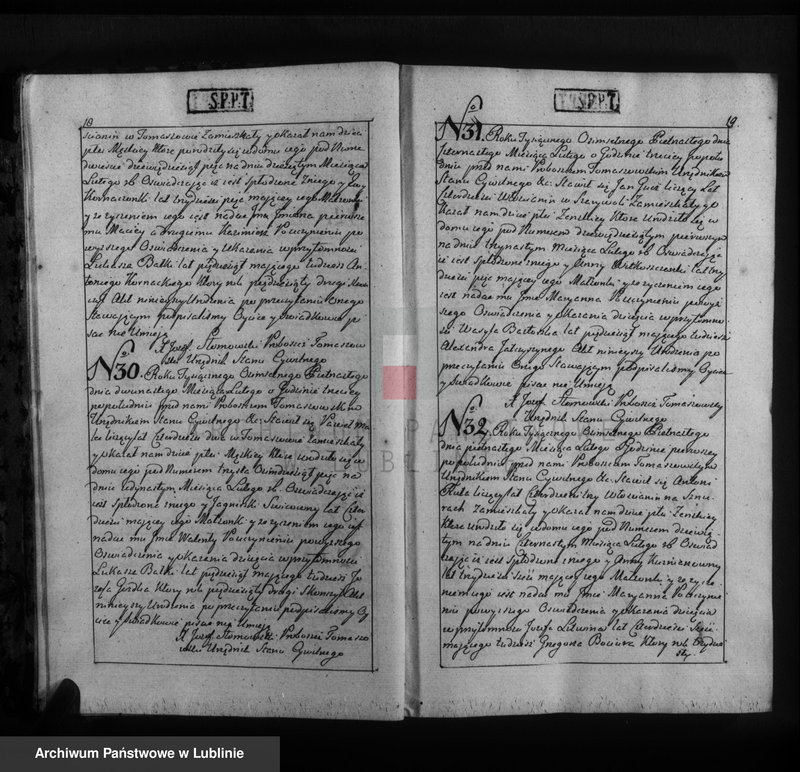 S.P.P.T.
18
w Tomaszowie Zamieszkały y okazał nam dzieci
płci Męskiey które urodziły się w domu iego pod Nume
dwieście dziewięćdziesiąt pięć na dniu dziesiątym Miesiąca
Lutego rb. Oswiadczaiąc iż iest spłodzone z niego y
lat trzydzieści pięć maiącey iego Małżonki
y życzeniem iego iest nadać im Jmiona pierwsze
mu Maciey a drugiemu Kazimierz Po uczynieniu po
wyższego Oswiadczenia y Okazania w przytomności
Łukasza Bałki lat pięćdziesiąt maiącego tudzież An
toniego Kornackiego który rok pięćdziesiąty drugi
Akt ninieyszy Urodzenia po przeczytaniu onego
Stawaiącym podpisaliśmy Oyciec y Swiadkowie pi
sać nie Umieią
X Jozef Słomowski Proboszcz Tomaszow
ski Urzędnik Stanu Cywilnego
No 30. Roku Tysiącznego Osmsetnego Pietnastego
dnia dwunastego Miesiąca Lutego o Godzinie trzeciey
popołudniu przed nami Proboszczem Tomaszowskim
Urzędnikiem Stanu Cywilnego &c. Stawił się Paweł
liczący lat Czterdzieści dwa w Tomaszowie Zamieszkały
y okazał nam dziecie płci Męskiey które urodziło się w
domu iego pod Numerem trzysta Osmdziesiąt pięć na
dniu iedynastym Miesiąca Lutego rb. Oswiadczaiąc iż
iest spłodzone z niego y Jagnieszki lat Czter
dzieści maiącey iego Małżonki y życzeniem iego iest
nadać mu Jmie Walenty Po uczynieniu powyższego
Oswiadczenia y okazania dziecięcia w przytomności
Łukasza Bałki lat pięćdziesiąt maiącego tudzież Jo
zefa który rok pięćdziesiąty drugi Skonczył Akt
ninieyszy Urodzenia po przeczytaniu podpisaliśmy Oy
ciec y Swiadkowie pisać nie Umieią
X Jozef Słomowski Proboszcz Tomaszo
wski Urzędnik Stanu Cywilnego
S.P.P.T.
19
No 31. Roku Tysiącznego Osmsetnego Pietnastego dnia
Czternastego Miesiąca Lutego o Godzinie trzeciey popołu
dniu przed nami Proboszczem Tomaszowskim Urzędnikiem
Stanu Cywilnego &c. Stawił się Jan liczący Lat
Czterdzieści Włościanin w Zamieszkały y o
kazał nam dziecie płci Zenskiey które Urodziło się w
domu iego pod Numerem dziewięćdziesiątym pierwszym
na dniu trzynastym Miesiąca Lutego rb. Oswiadczaiąc
iż iest spłodzone z niego y Anny lat trzy
dzieści pięć maiącey iego Małżonki y życzeniem iego
iest nadać mu Jmie Maryanna Po uczynieniu powyż
szego Oswiadczenia y okazania dziecięcia w przytomno
ści Wasyla lat pięćdziesiąt maiącego tudzież
Alexandra Akt ninieyszy Urodzenia po
przeczytaniu Onego Stawaiącym podpisaliśmy Oyciec
y Swiadkowie pisać nie Umieią
X Jozef Słomowski Proboszcz Tomaszowski
Urzędnik Stanu Cywilnego
No 32. Roku Tysiącznego Osmsetnego Pietnastego
dnia pietnastego Miesiąca Lutego o Godzinie pierwszey
popołudniu przed nami Proboszczem Tomaszowskim
Urzędnikiem Stanu Cywilnego &c. Stawił się Antoni
liczący lat Włościanin na Sznu
rach Zamieszkały y okazał nam dziecie płci Zenskiey
które Urodziło się w domu iego pod Numerem dziewią
tym na dniu Czternastym Miesiąca Lutego rb. Oswiad
czaiąc iż iest spłodzone z niego y Anny
lat trzydzieści sześć maiącey iego Małżonki y życze
niem iego iest nadać mu Jmie Maryanna Po uczynie
niu powyższego Oswiadczenia y okazania dziecięcia
w przytomności Jozefa Litwina lat Czterdzieści
maiącego tudzież Grzegorza który rok trzydzie
sty
Archiwum Państwowe w Lublinie